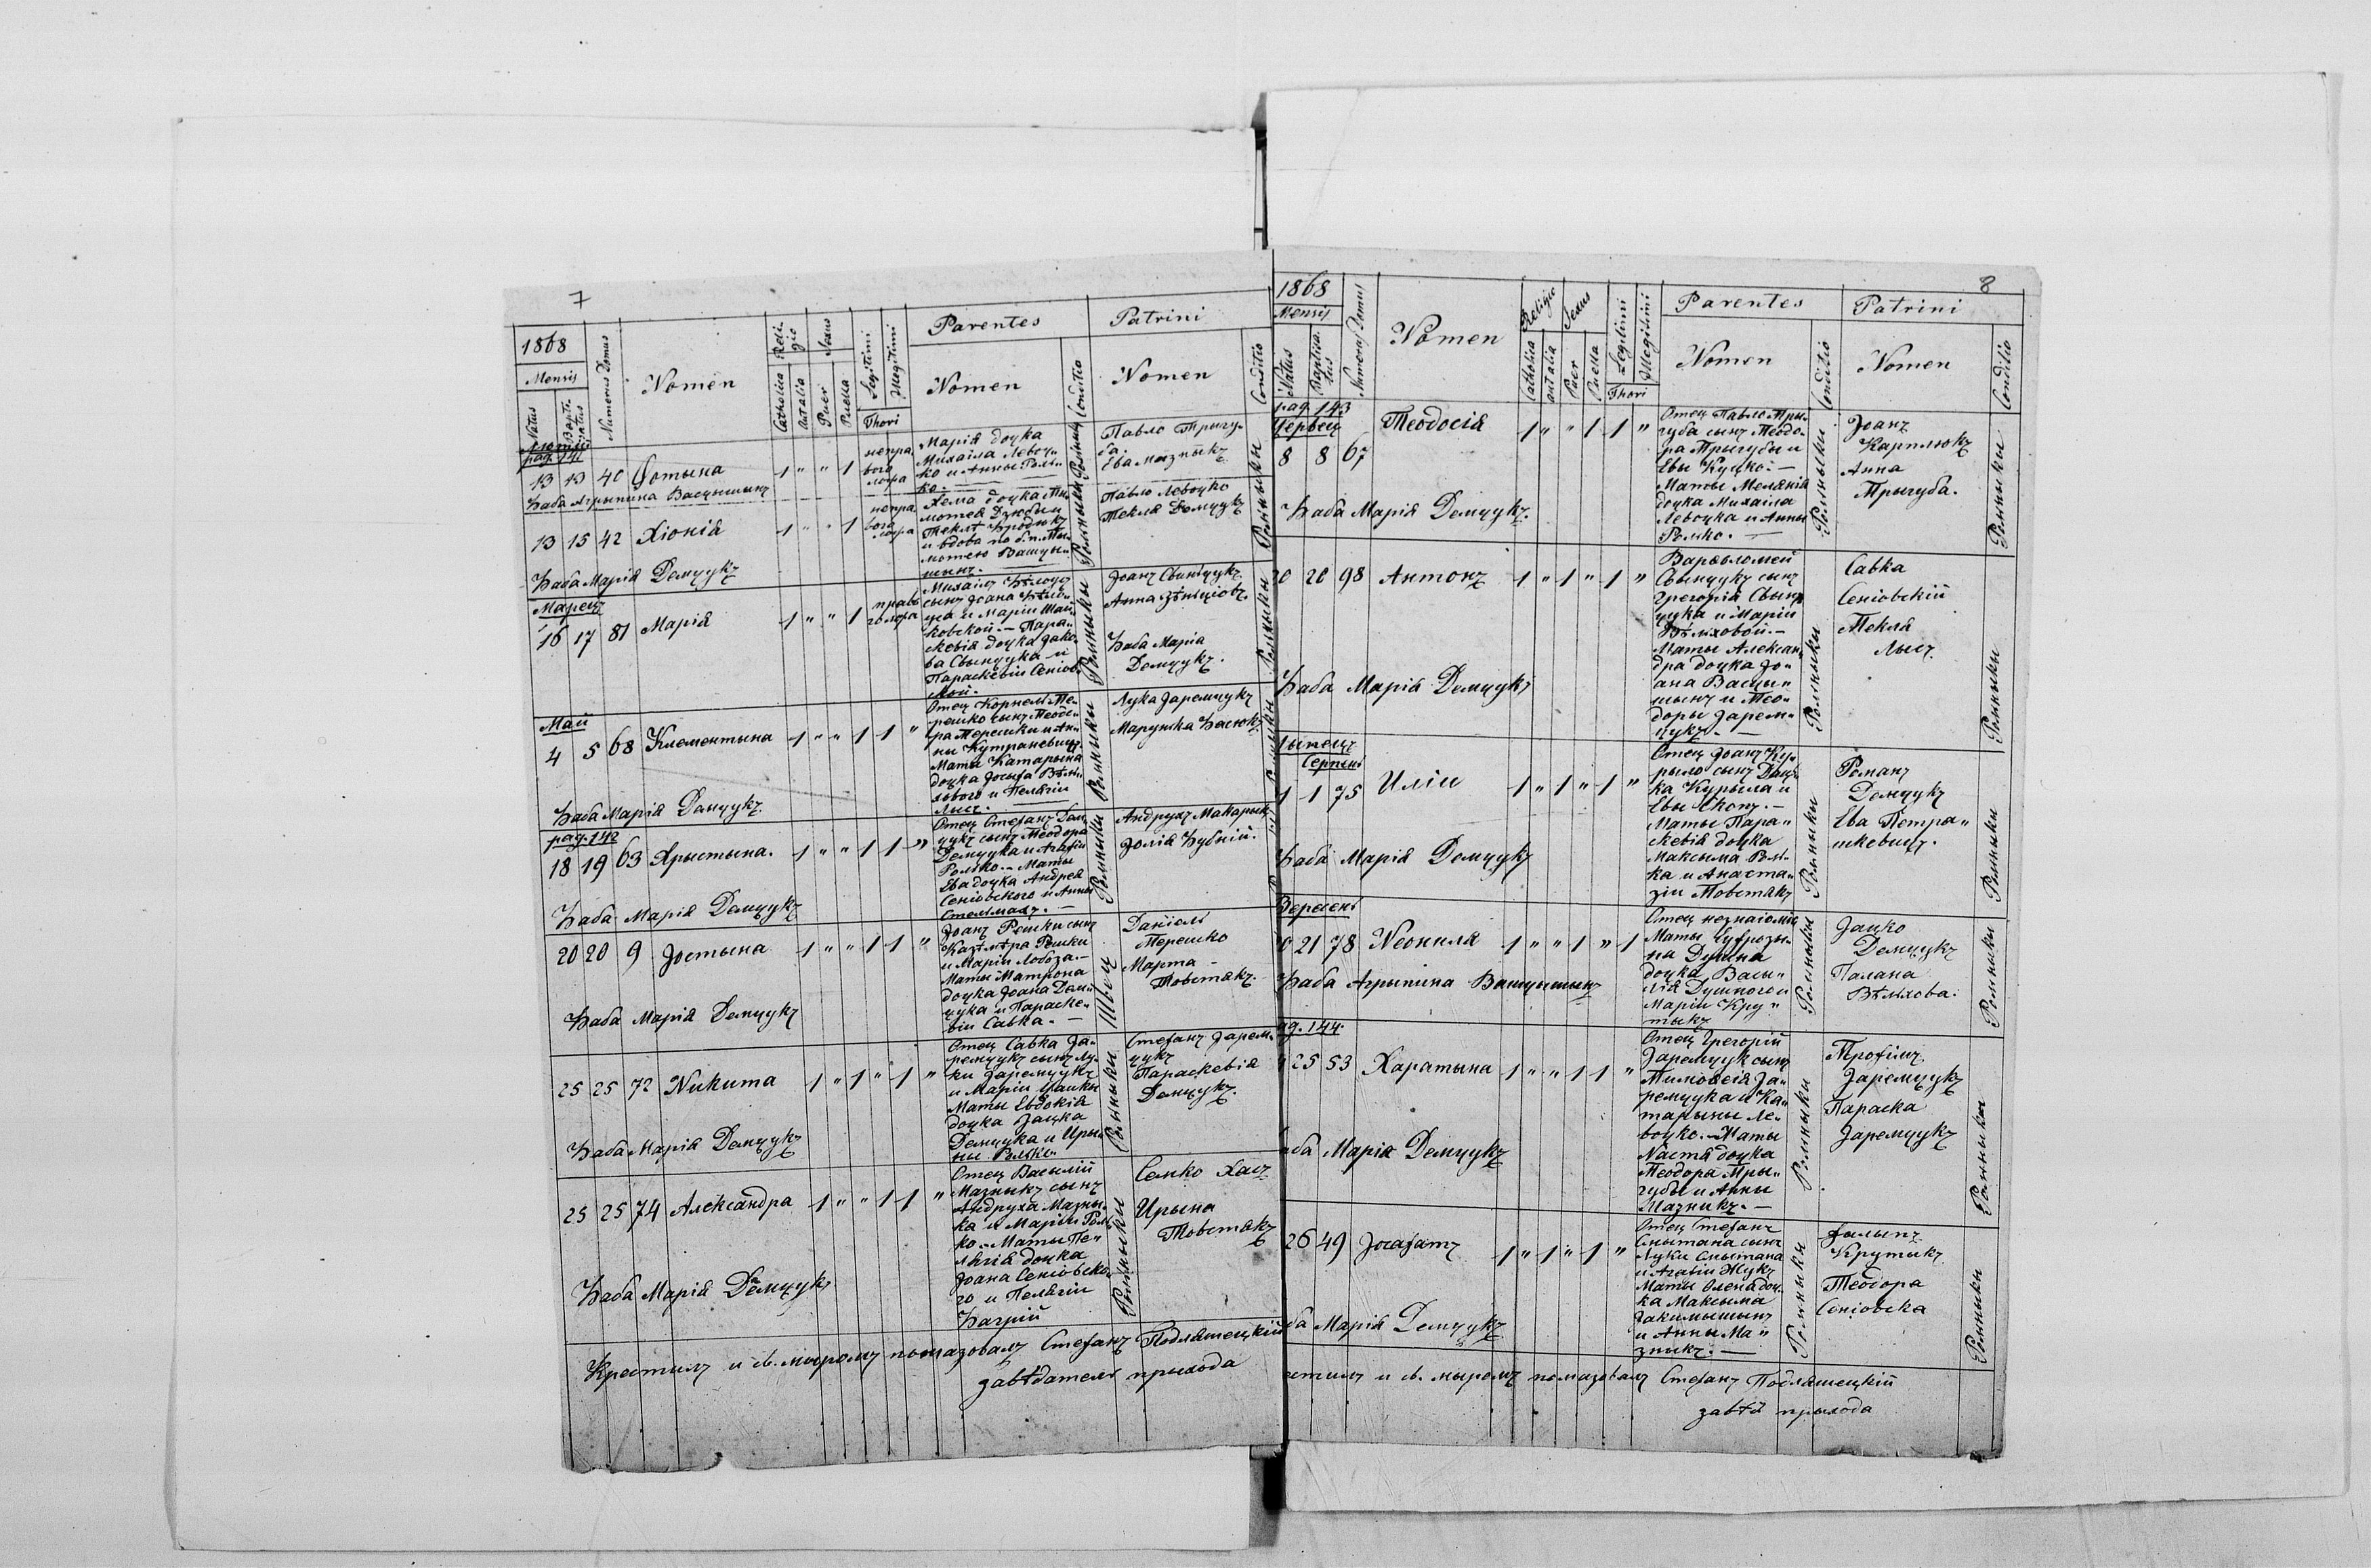 7
1868
Mensis
Natus
Baptisatus
Numerus Domus
Nomen
Religio
Catholica
aut alia
Sexus
Puer
Puella
Legitimi
Illegitimi
Thori
Parentes
Nomen
Conditio
Patrini
Nomen
Conditio
pag. 141
13 13 40 Фотына 1 " " 1 непра
вого
ложа
Марія доцка
Михаила Левоц-
ко и Анны Роль-
ко.
Рольныки
Павло Тригу-
ба.
Ева Мазныкъ
Баба Агрыпина Васцышынъ
13 15 42 Хіонія 1 " " 1 непра
вого
ложа
доцка
мотея Дзюбы и
Теклѣ
и вдова по б. п. Ты-
мотею Ващу-
шынъ.
Рольныки
Павло Левоцко
Текля Демцукъ
Баба Марія Демцукъ
Марецъ
16 17 81 Марія 1 " " 1 правъ
го ложа
Михаилъ
сынъ Іоана
и Маріи Шай-
ковской. — Пара-
скевія доцка Яко-
ва Свынцука и
Параскевіи Сеніов-
ской.
Рольныки
Іоанъ Свынцукъ
Анна
Баба Марія
Демцукъ.
Май
4 5 68 Клементына 1 " " 1 1 "
Отец Корнел Те-
решко сынъ Теодо-
ра Терешки и Ан-
ны Кутраневицъ.
Маты Катарына
доцка Іосыфа Вѣль-
хового и Пелагіи
Лысъ.
Рольныки
Лука Яремцукъ
Марунька Басюкъ
Баба Марія Данцукъ
pag. 142
18 19 63 Хрыстына. 1 " " 1 1 "
Отец Стефанъ Дем-
цукъ сынъ Теодора
Демцука и Агафіи
Ролько. — Маты
Ева доцка Андрея
Сеніовского и Анны
Стельмахъ. —
Рольныки
Андрухъ Макарык
Юлія Бубній.
Баба Марія Демцукъ
20 20 9 Іостына 1 " " 1 1 "
Іоанъ Решки сынъ
Казимѣра Решки
и Маріи Лобоза. —
Маты Матрона
доцка Іоана Дем-
цука и Параске-
віи Савка. —
Швец
Даніель
Терешко
Марта
Товстякъ
Баба Марія Демцукъ
25 25 72 Никита 1 " 1 " 1 "
Отец Савка Я-
ремцукъ сынъ Лу-
ки Яремцука
и Маріи Цацки
Маты Евдокія
доцка Яцка
Демцука и Иры-
ны Ролько
Рольныки
Стефанъ Ярем-
цукъ
Параскевія
Демцукъ.
Баба Марія Данцукъ
25 25 74 Александра 1 " " 1 1 "
Отец Василій
Мазныкъ сынъ
Андруха Мазны-
ка и Маріи Роль-
ко. — Маты Пе-
лагія доцка
Іоана Сеніовско-
го и Пелагіи
Багрій
Рольныки
Семко Хасъ
Ирына
Товстякъ
Баба Марія Демцукъ
Крестилъ и св. мыромъ помазовалъ Стефанъ Подляшецкій
завѣдатель прыхода
8
1868
Mensis
Natus
Baptisatus
Numerus Domus
Nomen
Religio
Catholica
aut alia
Sexus
Puer
Puella
Legitimi
Illegitimi
Thori
Parentes
Nomen
Conditio
Patrini
Nomen
Conditio
pag. 143
Червецъ
8 8 67 Теодосія 1 " " 1 1 "
Отец Павло Тры-
губа сынъ Теодо-
ра Трыгубы и
Евы Куцко. —
Маты Меланія
доцка Михаила
Левоцка и Анны
Ролько. —
Рольныки
Іоанъ
Карплюкъ
Анна
Трыгуба.
Рольныки
Баба Марія Демцукъ.
20 20 98 Антонъ 1 " 1 " 1 "
Варѳоломей
Свынцукъ сынъ
Грегорія Свын-
цука и Маріи
Вѣльховой. —
Маты Александра
доцка Іо-
ана Васцы-
шынъ и Тео-
доры Ярем-
цукъ. —
Рольныки
Савка
Сеніовскій
Текля
Лысъ
Рольныки
Баба Марія Демцукъ
Лыпецъ
Серпень
1 1 75 Иліи 1 " 1 " 1 "
Отец Іоанъ Ку-
рыло сынъ Дац-
ка Курыла и
Евы Скопъ. —
Маты Пара-
скевія доцка
Максыма Роль-
ка и Анаста-
зіи Товстякъ
Рольныки
Романъ
Демцукъ
Ева Петра-
шкевицъ.
Рольныки
Баба Марія Демцукъ
Вересень
21 78 Неонила 1 " " 1 " 1
Отец незнаіомый
Маты Еуфрозы-
на Душна
доцка Васы-
лія Душного и
Маріи Кру-
тыкъ
Рольныки
Яцко
Демцукъ
Палана
Вѣльхова.
Рольныки
Баба Агрыпина Ващышынъ
pag. 144.
25 53 Харатына 1 " " 1 1 "
Отец Грегорій
Яремцукъ сынъ
Тимоѳея Я-
ремцука и Ка-
тарыны Ле-
воцко. — Маты
Настя доцка
Теодора Тры-
губы и Анны
Мазныкъ. —
Рольныки
Трофимъ
Яремцукъ
Параска
Яремцукъ
Рольныки
Баба Марія Демцукъ
26 49 Іосафатъ 1 " 1 " 1 "
Отец Стефанъ
Сметана сынъ
Луки Сметана
и Агафіи Жукъ
Маты Олена доц-
ка Максыма
Якимышынъ
и Анны Ма-
зныкъ. —
Рольныки
Филыпъ
Крутикъ
Теодора
Сеніовска
Рольныки
ба Марія Демцукъ
естилъ и св. мыромъ помазовалъ Стефанъ Подляшецкій
завѣд прыхода